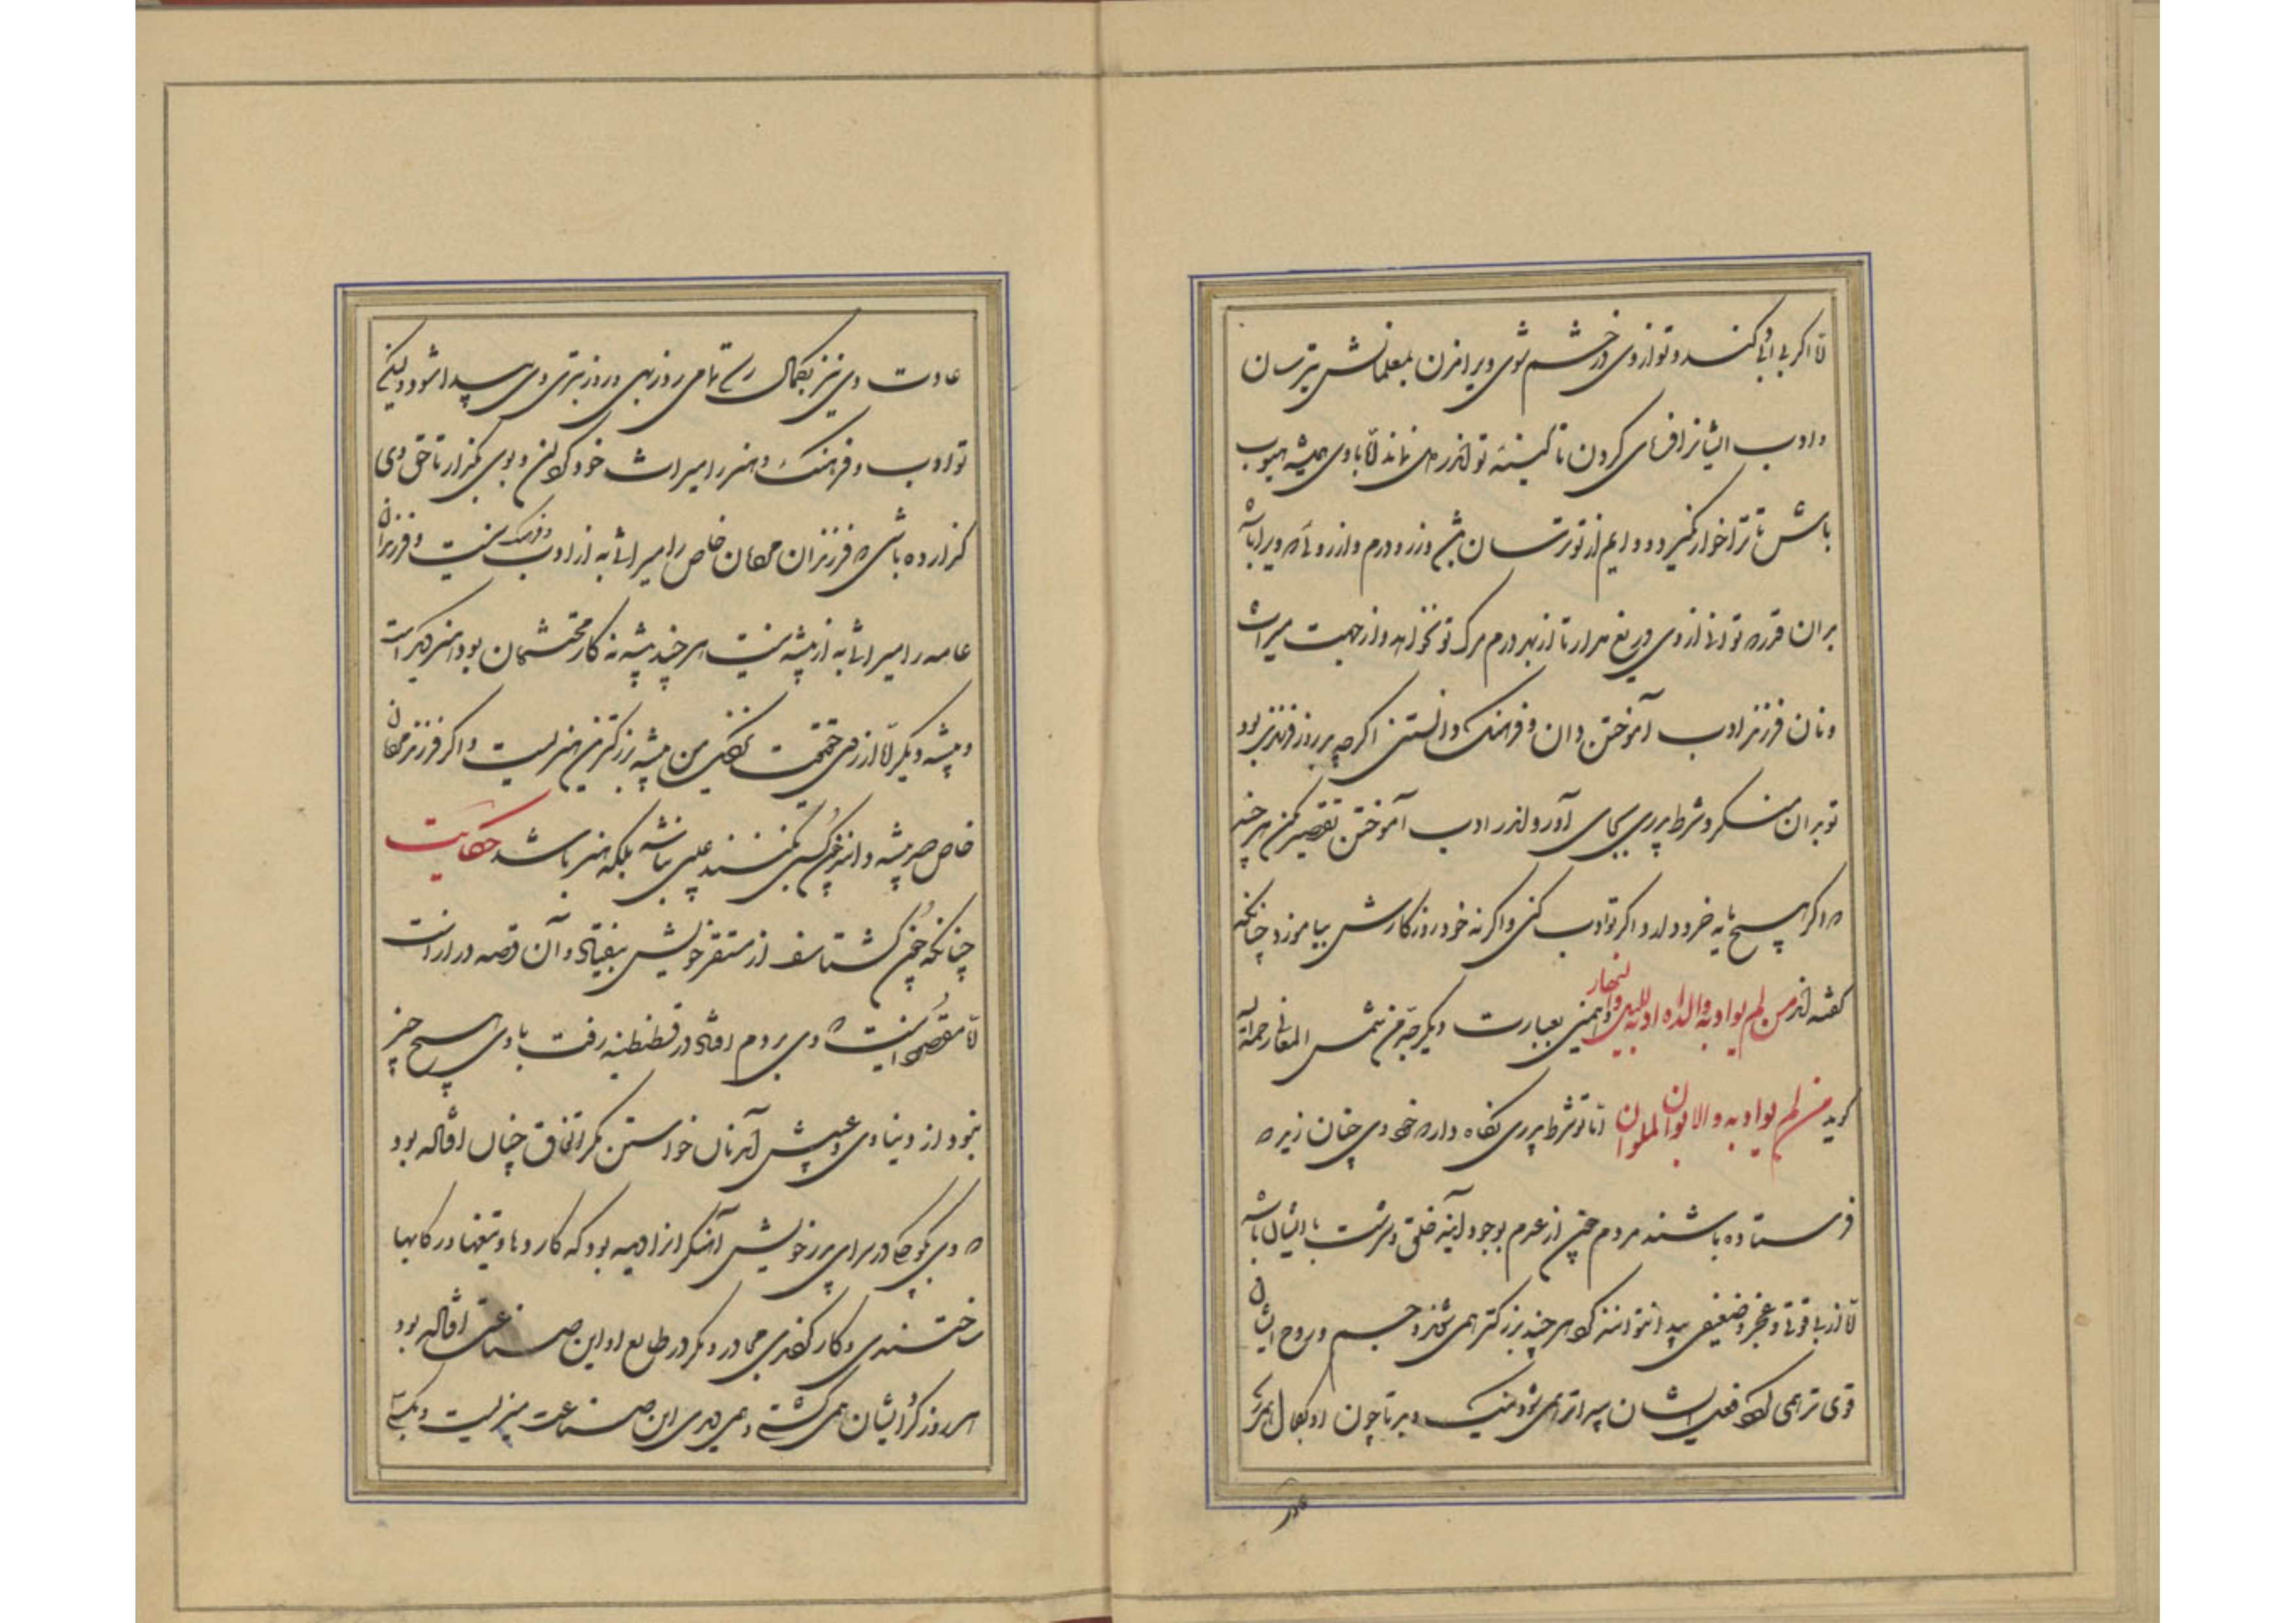 تا اگر بی ادبی کند و تو از وی در خشم شوی ویرا مزن بمعلمانش بترسان
و ادب ایشانرا فرمای کردن تا کینهٔ تو اندر دل وی نماند تا با وی همیشه بهیبت
باش تا ترا خوار نگیرد و دایم از تو ترسان باشد و زر و درم و آرزوئی که ویرا باشد
بدان قدر که توانی از وی دریغ مدار تا از بهر درم مرگ تو نخواهد و از جهت میراث
و نان فرزند ادب آموختن دان و فرهنگ دانستن اگر چه بد روز فرزندی بود
تو بدان منگر و شرط پدری بجای آور و اندر ادب آموختن تقصیر مکن هر چند
که اگر هیچ مایه خرد ندارد اگر تو ادب کنی و اگر نه خود روزگارش بیاموزد چنانکه
گفته‌اند من لم یوادبه والداه ادبه اللیل والنهار و همین بعبارت دیگر جد من شمس المعانی رحمه الله
گوید من لم یوادبه والابوان الملوان اما تو شرط پدری نگاه دار که خود وی چنان زید که
فرستاده باشند مردم چون از عدم بوجود آید خلق و سرشت با ایشان باشد
تا از بی قوتی و عجز و ضعیفی پیدا نتوانند کرد هر چند بزرگتر همی شوند و جسم و روح ایشان
قوی تر همی گردد فعل ایشان پیداتر همی شود نیک و بد تا چون او بکمال رسد
عادت
عادت وی نیز بکمال رسد تمامی روز بهی و روز بتری وی پیدا شود ولیکن
تو ادب و فرهنگ و هنر را میراث خود گردان و بوی بگذار تا حق وی
گزارده باشی که فرزندان مردمان خاص را میراثی به از ادب و فرهنگ نیست و فرزندان
عامه را میراثی به از پیشه نیست هر چند پیشه نه کار محتشمان بود هنر دیگر است
و پیشه دیگر اما از روی حقیقت نزدیک من پیشه بزرگترین هنریست و اگر فرزند مردمان
خاص صد پیشه دانند چون کسبی نکنند عیبی نباشد بلکه هنر باشد حکایت
چنانکه چون گشتاسف از مستقر خویش بیفتاد و آن قصه دراز است
تا مقصود اینست که وی بروم افتاد در قسطنطنیه رفت با وی هیچ چیز
نبود از دنیاوی و عیبش آمد نان خواستن مگر اتفاق چنان افتاده بود
که وی بکوچکی در سرای پدر خویش آهنگرانرا دیده بود که کاردها و تیغها و رکابها
ساختندی و کار کردندی مگر در طالع او این صناعت افتاده بود
هر روز گرد ایشان همی گشتی و همی دیدی این صناعت